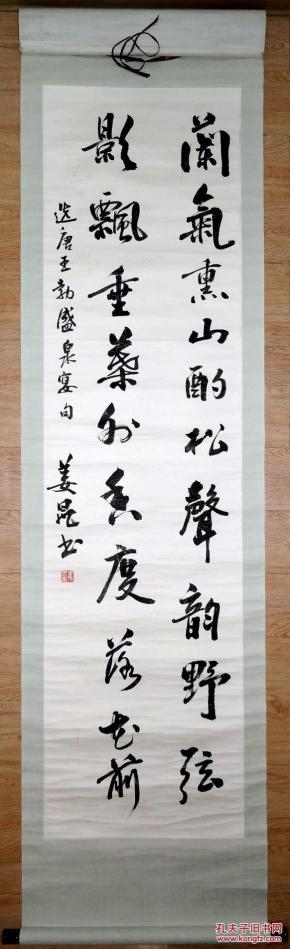 蘭氣熏山酌松聲韵野弦
影飄垂葉外香度落花前
选唐王勃盛泉宴句
姜昆书
孔夫子旧书网
www.kongfz.com